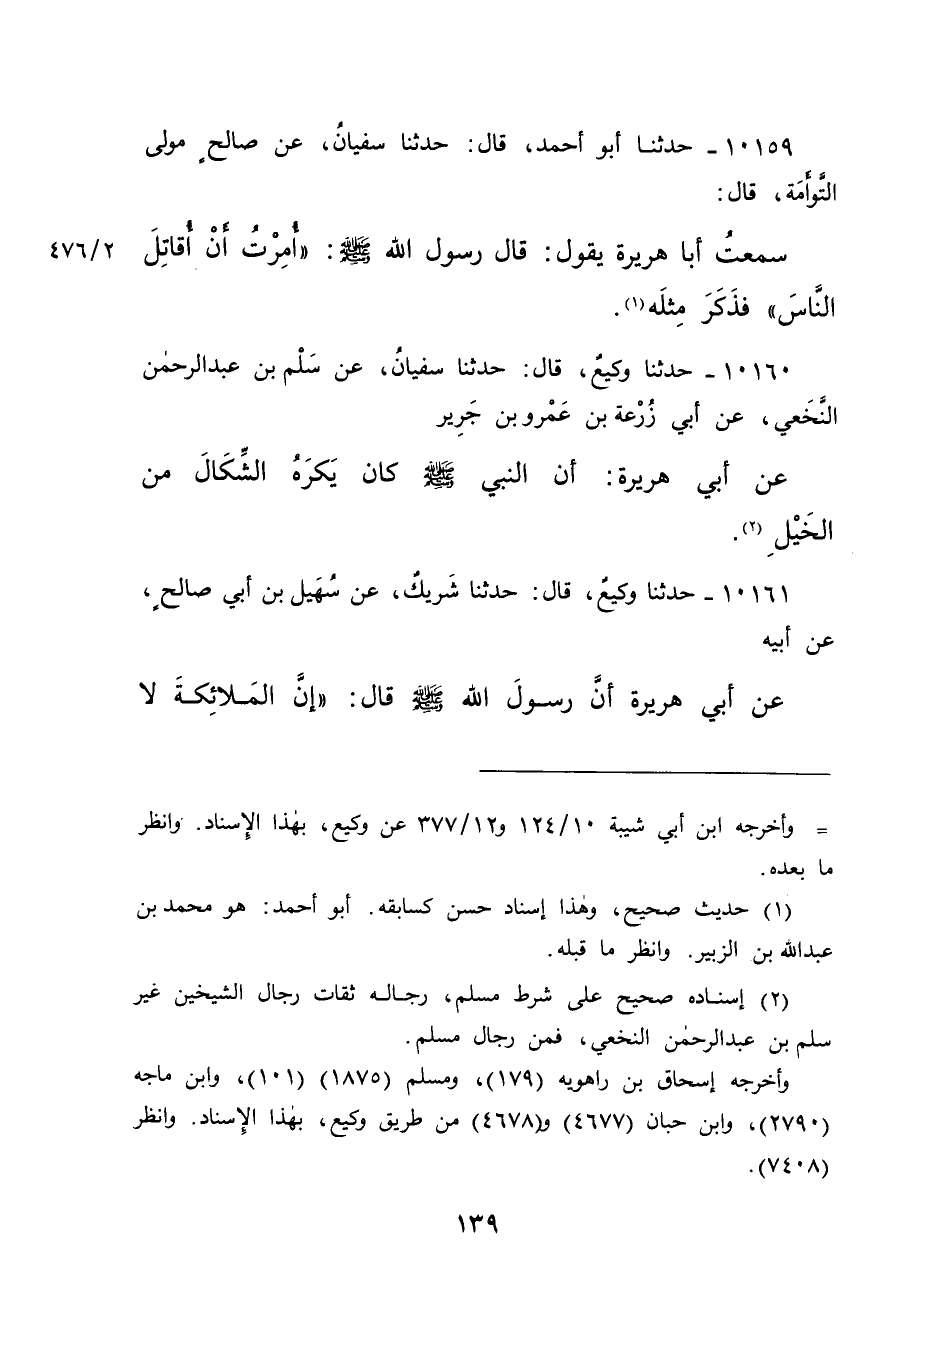 ١٠١٥٩ ـ حدثنا أبو أحمد، قال: حدثنا سفيانُ، عن صالحٍ مولى
التَّوأَمَة، قال:
سمعتُ أبا هريرة يقول: قال رسول الله ﷺ: «أُمِرْتُ أَنْ أُقاتِلَ ٤٧٦/٢
النَّاسَ» فذَكَرَ مِثلَه(١).
١٠١٦٠ ـ حدثنا وكيعٌ، قال: حدثنا سفيانُ، عن سَلْم بن عبدالرحمٰن
النَّخَعي، عن أبي زُرْعة بن عَمْرو بن جَرِير
عن أبي هريرة: أن النبي ﷺ كان يَكرَهُ الشِّكَالَ من
الخَيْلِ(٢).
١٠١٦١ ـ حدثنا وكيعٌ، قال: حدثنا شَريكٌ، عن سُهَيل بن أبي صالحٍ،
عن أبيه
عن أبي هريرة أنَّ رسولَ الله ﷺ قال: «إنَّ المَلائِكةَ لا
= وأخرجه ابن أبي شيبة ١٢٤/١٠ و٣٧٧/١٢ عن وكيع، بهٰذا الإِسناد. وانظر
ما بعده.
(١) حديث صحيح، وهٰذا إسناد حسن كسابقه. أبو أحمد: هو محمد بن
عبدالله بن الزبير. وانظر ما قبله.
(٢) إسناده صحيح على شرط مسلم، رجاله ثقات رجال الشيخين غير
سلم بن عبدالرحمٰن النخعي، فمن رجال مسلم.
وأخرجه إسحاق بن راهويه (١٧٩)، ومسلم (١٨٧٥) (١٠١)، وابن ماجه
(٢٧٩٠)، وابن حبان (٤٦٧٧) و(٤٦٧٨) من طريق وكيع، بهٰذا الإِسناد. وانظر
(٧٤٠٨).
١٣٩